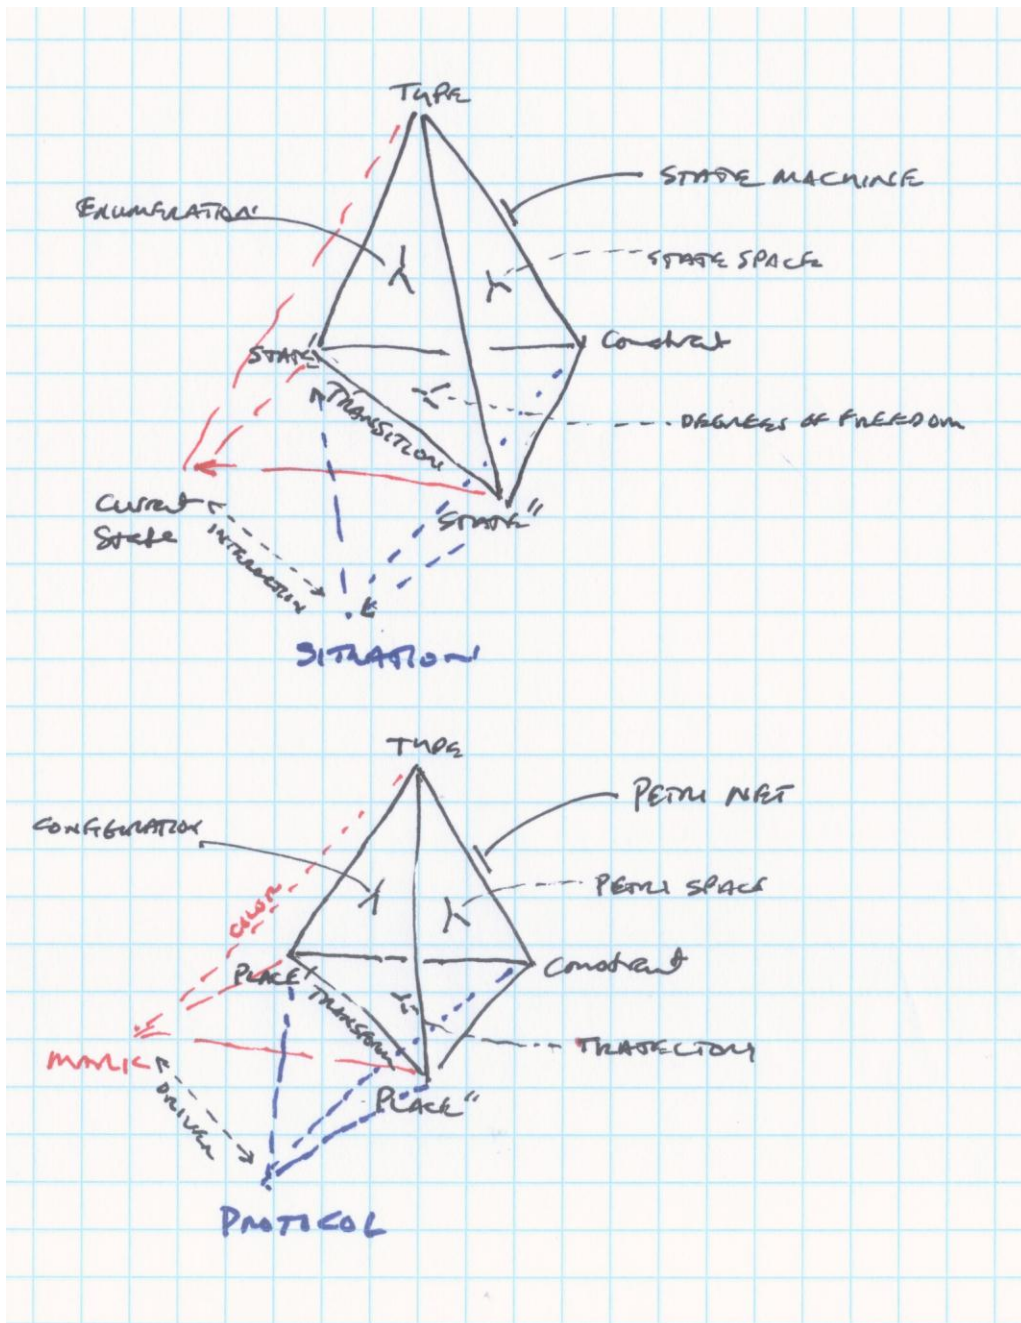 TYPE
STATE MACHINE
ENUMERATION
STATE SPACE
STATE'
Constraint
TRANSITION
DEGREES OF FREEDOM
Current
State
STATE"
INTERACTION
SITUATION
TYPE
PETRI NET
CONFIGURATION
PETRI SPACE
COLOR
PLACE'
Constraint
TRANSFORM
TRAJECTORY
MARK
PLACE"
DRIVEN
PROTOCOL